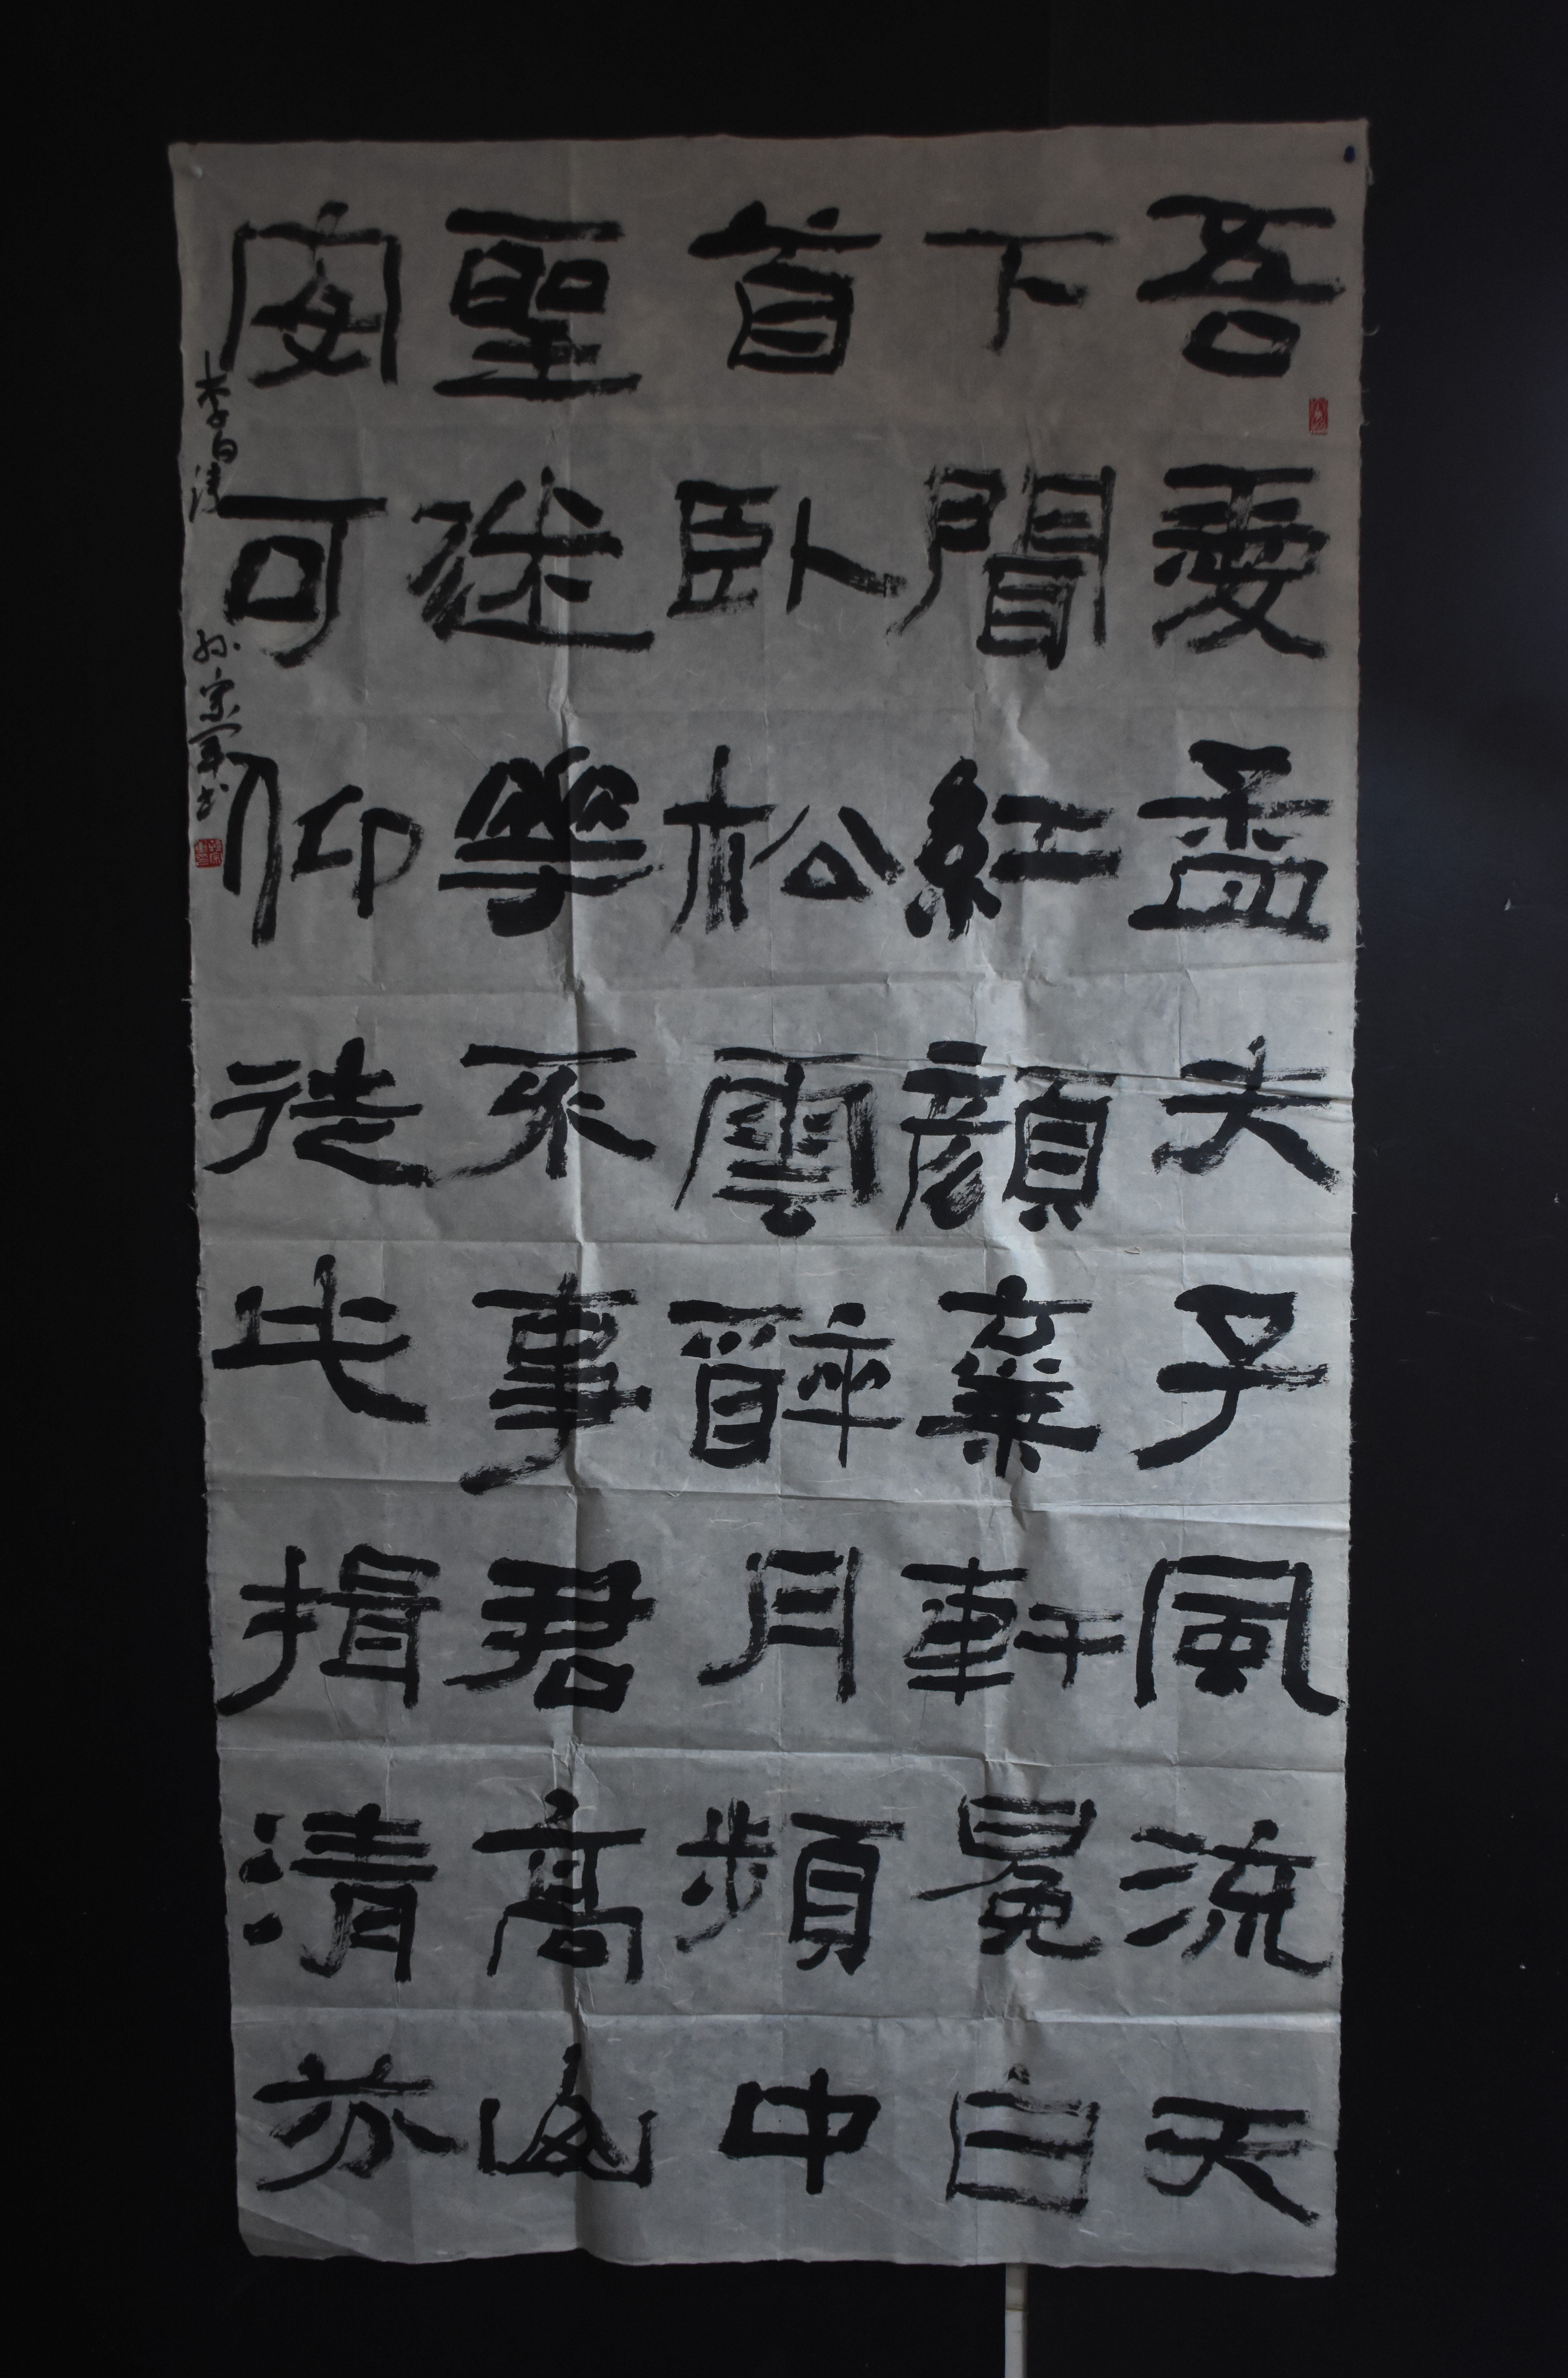 吾愛孟夫子風流天
下聞紅顏棄軒冕白
首臥松雲醉月頻中
聖迷華不事君高山
安可仰徒此揖清芬
李白诗
孙宗军书